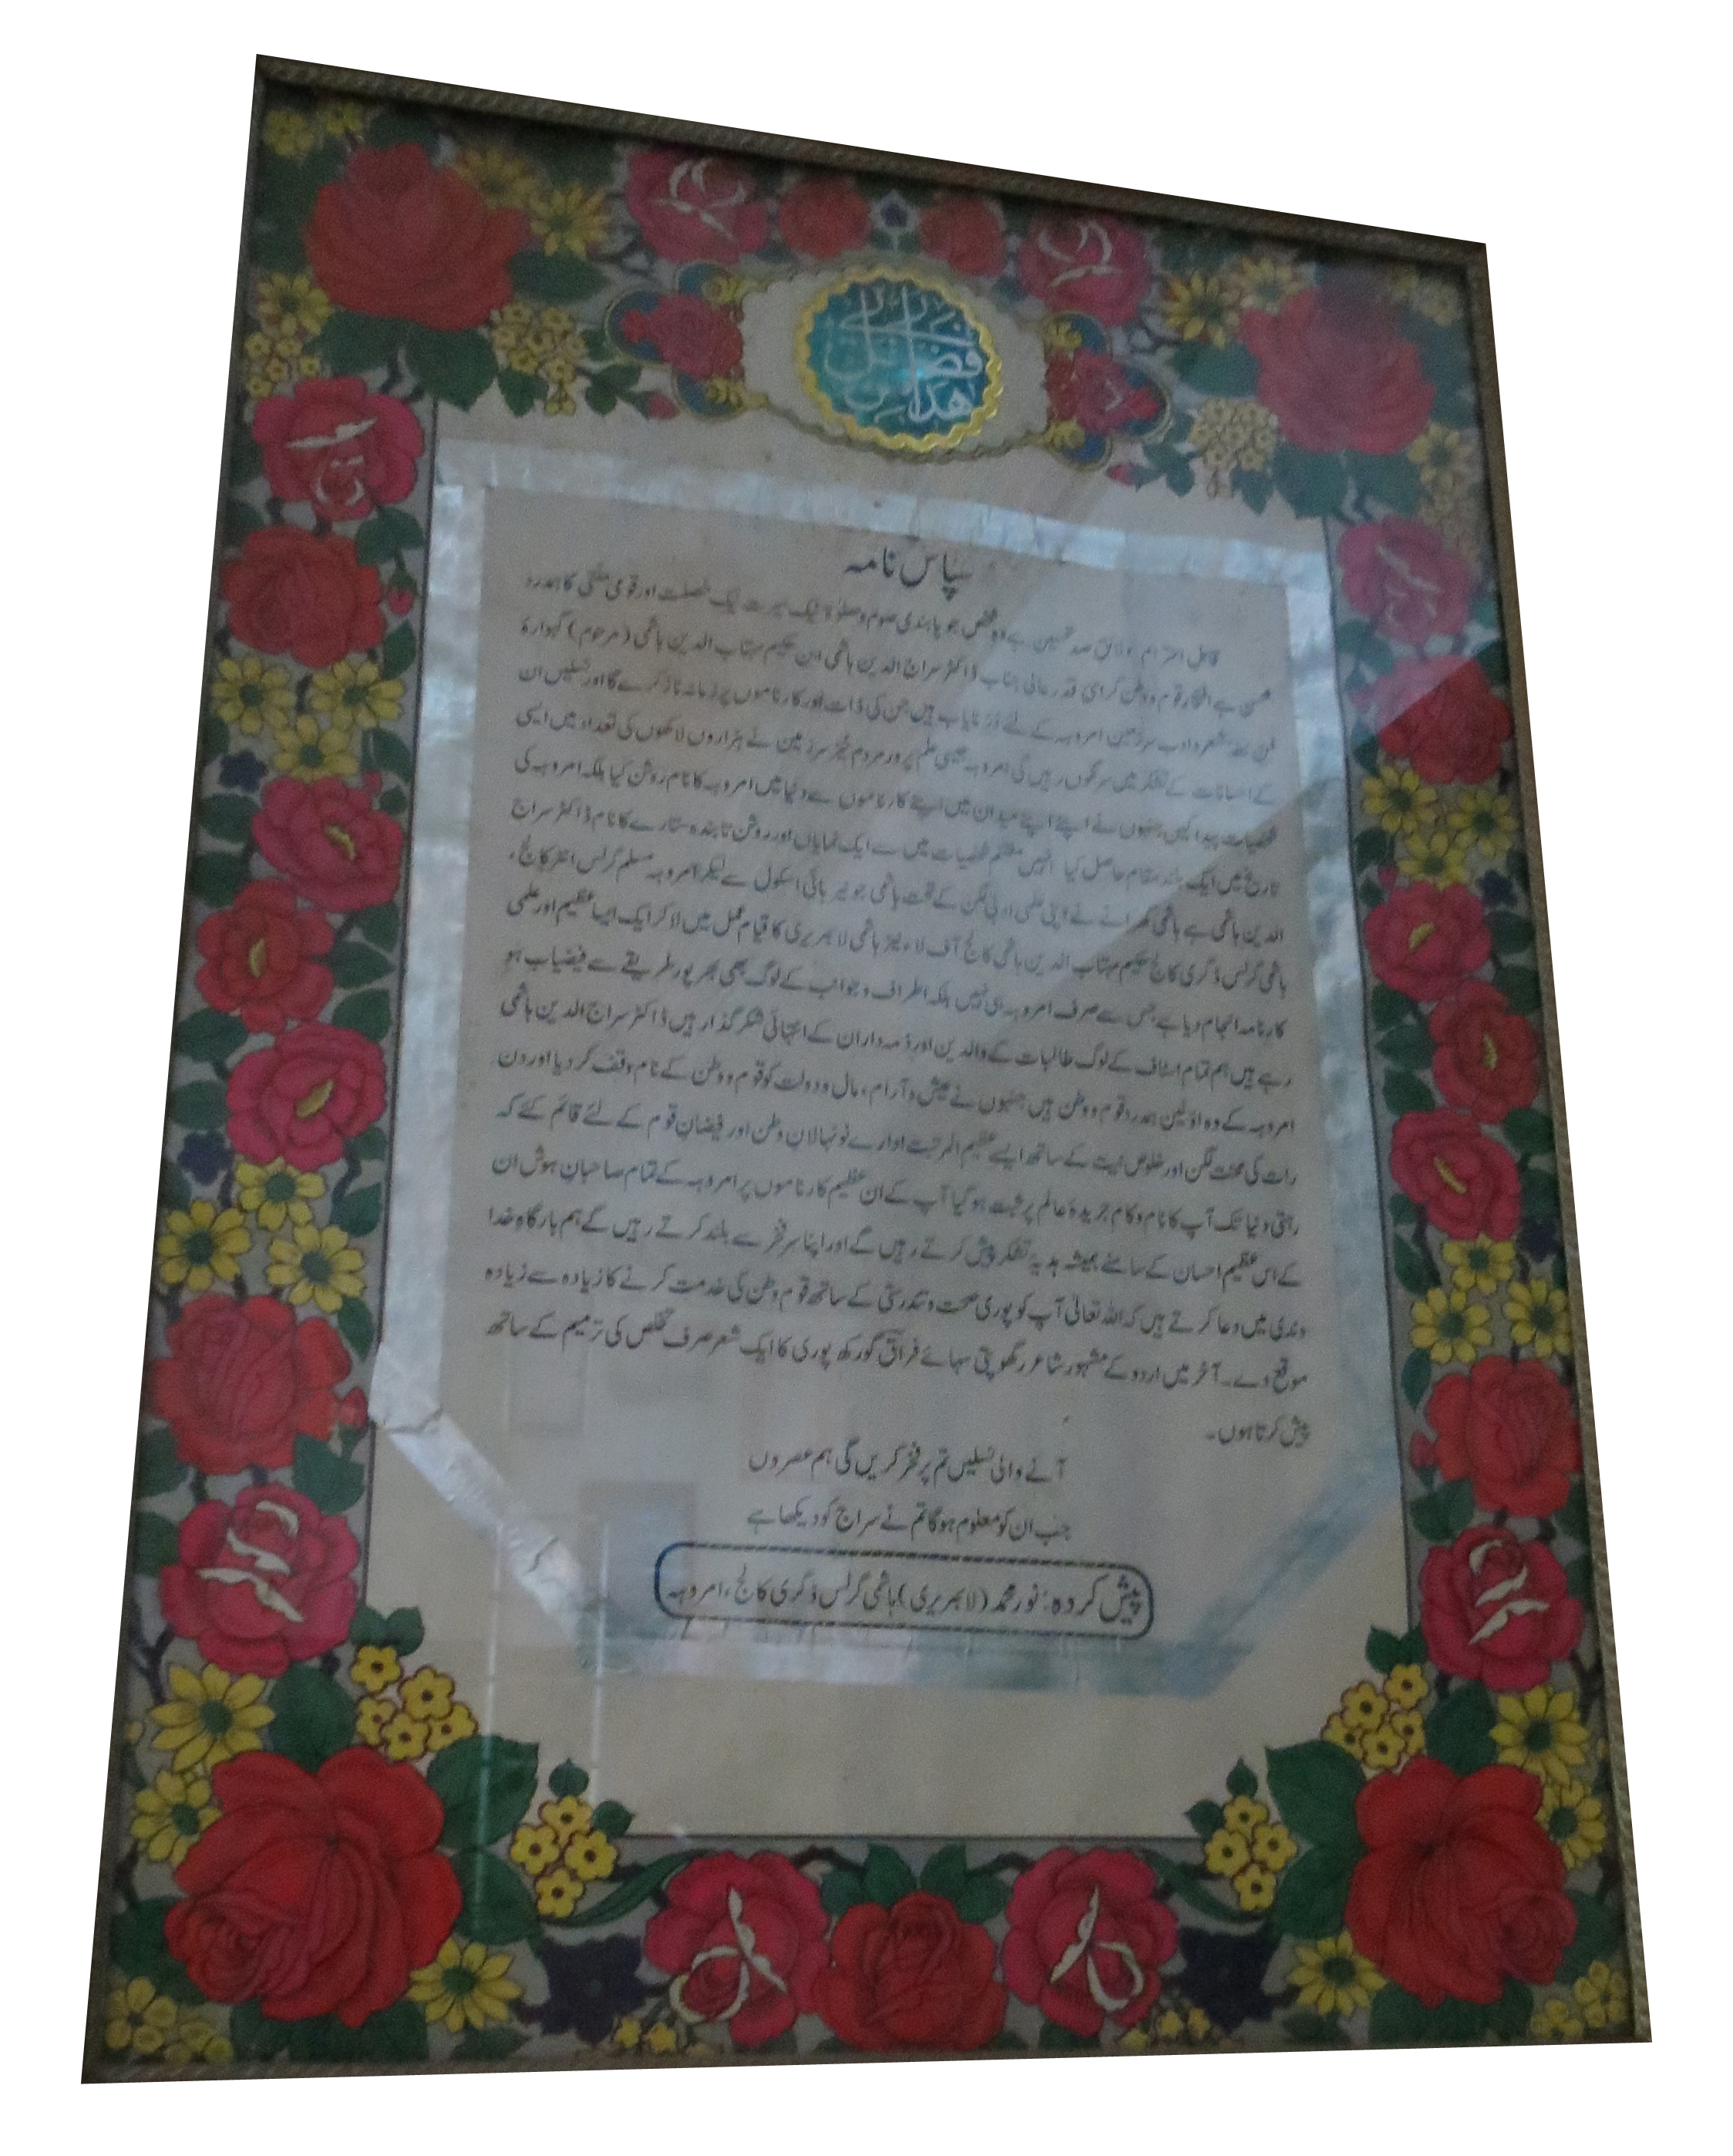 هذا من فضل ربي
سپاس نامہ
قابل احترام و لائق صد تحسین ہے وہ شخص جو پابندی صوم و صلوٰۃ نیک سیرت نیک خصلت اور قومی ملی کا ہمدرد
محسن ہے افتخار قوم و وطن گرامی قدر عالی جناب ڈاکٹر سراج الدین ہاشمی ابن حکیم مہتاب الدین ہاشمی (مرحوم) گہوارۂ
شعر و ادب سرزمین امروہہ کے لئے درِ نایاب ہیں جن کی ذات اور کارناموں پر زمانہ ناز کرے گا اور نسلیں ان
کے احسانات کے تشکر میں سرنگوں رہیں گی امروہہ جیسی علم پرور مردم خیز سرزمین نے ہزاروں لاکھوں کی تعداد میں ایسی
شخصیات پیدا کیں جنہوں نے اپنے اپنے میدان میں اپنے کارناموں سے دنیا میں امروہہ کا نام روشن کیا بلکہ امروہہ کی
تاریخ میں ایک بلند مقام حاصل کیا انہیں شخصیات میں سے ایک نمایاں اور روشن تابندہ ستارے کا نام ڈاکٹر سراج
الدین ہاشمی ہے ہاشمی گھرانے نے اپنی علمی ادبی لگن کے تحت ہاشمی جونیر ہائی اسکول سے لیکر امروہہ مسلم گرلس انٹر کالج،
ہاشمی گرلس ڈگری کالج حکیم مہتاب الدین ہاشمی کالج آف لاء نیز ہاشمی لائبریری کا قیام عمل میں لا کر ایک ایسا عظیم اور علمی
کارنامہ انجام دیا ہے جس سے صرف امروہہ ہی نہیں بلکہ اطراف و جوانب کے لوگ بھی بھرپور طریقے سے فیضیاب ہو
رہے ہیں ہم تمام اسٹاف کے لوگ طالبات کے والدین اور ذمہ داران کے انتہائی شکر گذار ہیں ڈاکٹر سراج الدین ہاشمی
امروہہ کے وہ اولین ہمدرد قوم و وطن ہیں جنہوں نے عیش و آرام، مال و دولت کو قوم و وطن کے نام وقف کر دیا اور دن
رات کی محنت لگن اور خلوص نیت کے ساتھ ایسے عظیم المرتبت ادارے نونہالان وطن اور فیضان قوم کے لئے قائم کئے کہ
رہتی دنیا تک آپ کا نام و کام جریدۂ عالم پر ثبت ہو گیا آپ کے ان عظیم کارناموں پر امروہہ کے تمام صاحبان ہوش ان
کے اس عظیم احسان کے سامنے ہمیشہ ہدیہ تشکر پیش کرتے رہیں گے اور اپنا سر فخر سے بلند کرتے رہیں گے ہم بارگاہ خدا
وندی میں دعا کرتے ہیں کہ اللہ تعالیٰ آپ کو پوری صحت و تندرستی کے ساتھ قوم و وطن کی خدمت کرنے کا زیادہ سے زیادہ
موقع دے۔ آخر میں اردو کے مشہور شاعر رگھوپتی سہائے فراق گورکھپوری کا ایک شعر صرف تخلص کی ترمیم کے ساتھ
پیش کرتا ہوں۔
آنے والی نسلیں تم پر فخر کریں گی ہم عصروں
جب ان کو معلوم ہوگا تم نے سراج کو دیکھا ہے
پیش کردہ: نور محمد (لائبریری) ہاشمی گرلس ڈگری کالج، امروہہ